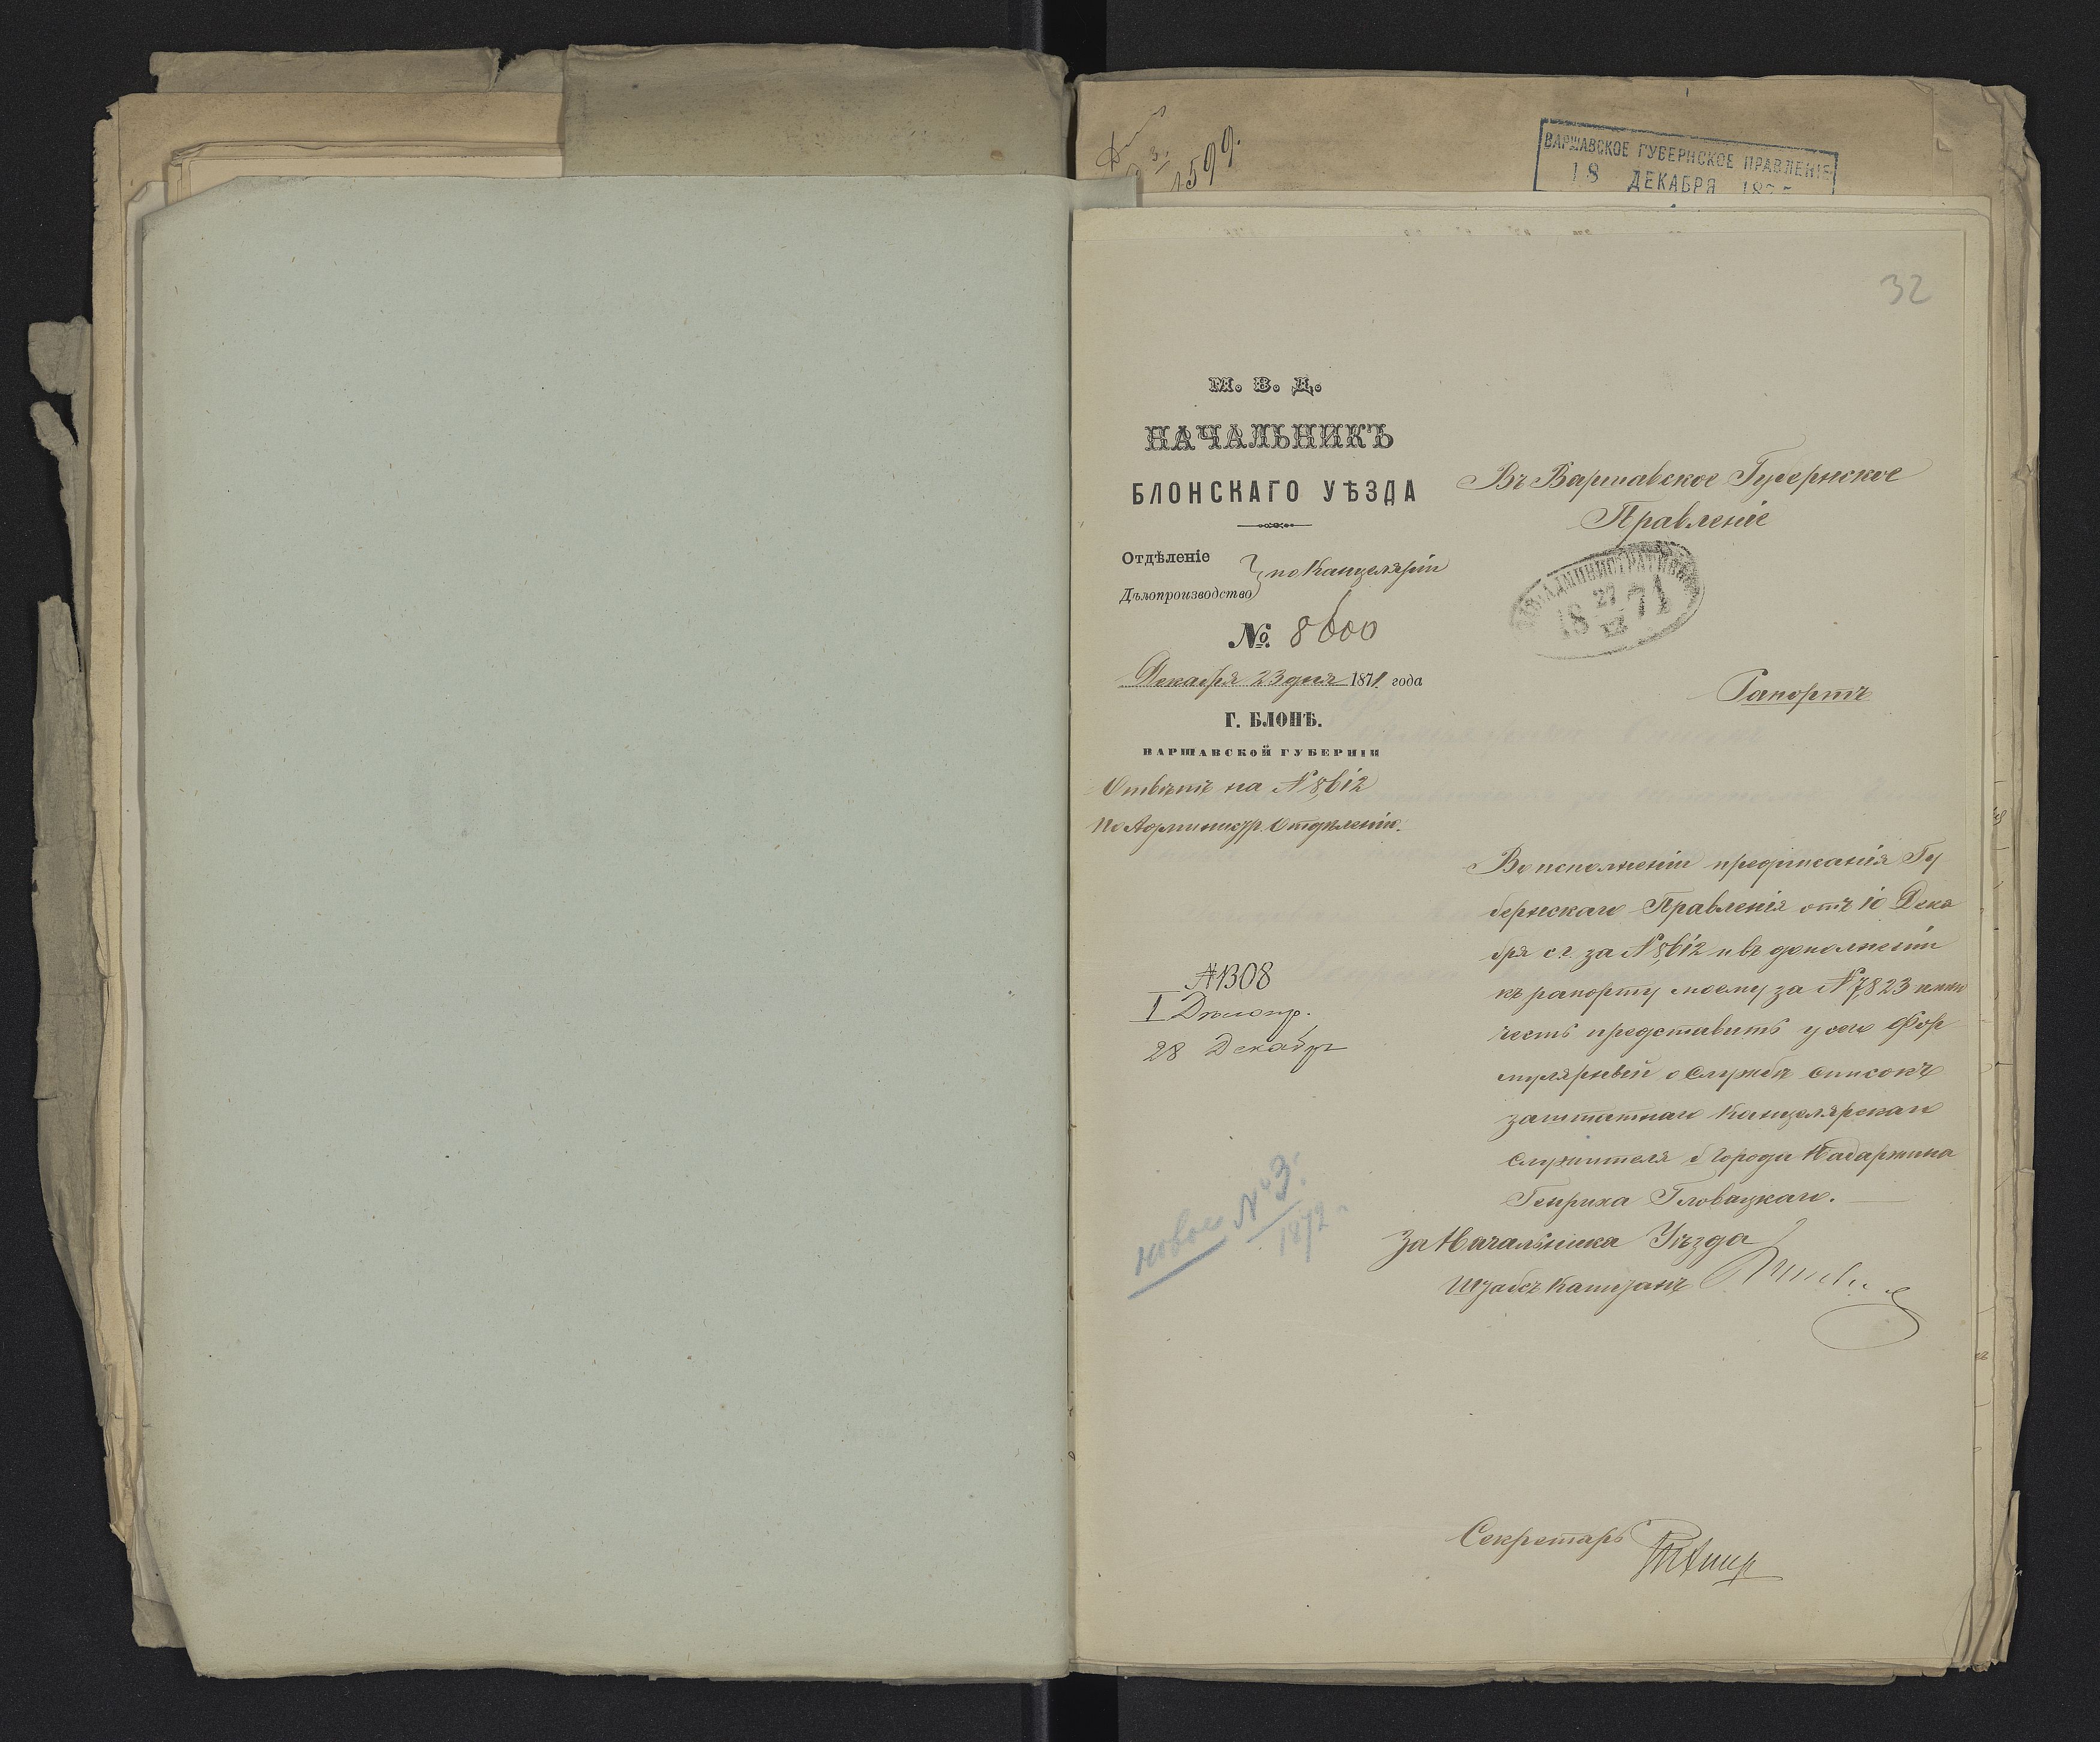 1599.
ВАРШАВСКОЕ ГУБЕРНСКОЕ ПРАВЛЕНІЕ
18 ДЕКАБРЯ 187
32
М. В. Д.
НАЧАЛЬНИКЪ
БЛОНСКАГО УѢЗДА
Отдѣленіе
Дѣлопроизводство
по Канцеляріи
№ 8600
Декабря 23 дня 1871 года
Г. БЛОНѢ.
ВАРШАВСКОЙ ГУБЕРНІИ
Отвѣтъ на № 8,612
по Администр. Отдѣленію.
Въ Варшавское Губернское
Правленіе
АДМИНИСТРАТИВН
18 27/XII 71
Рапортъ
Во исполненіи предписанія Гу
бернскаго Правленія отъ 10 Дека
бря с. г. за № 8,612 и въ дополненіи
къ рапорту моему за № 7,823 имѣю
честь представить у сего Фор
мулярный о службѣ списокъ
заштатнаго Канцелярскаго
служителя б. Города Надаржина
Генриха Гловацкаго.
За Начальника Уѣзда
Штабсъ Капитанъ
№ 1308
I Дѣлопр.
28 Декабря
новое № 3.
1872 г.
Секретарь